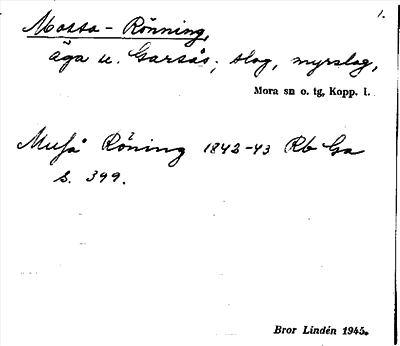 1.
Mossa-Rönning,
äga u. Garsås; slog, myrslog,
Mora sn o. tg, Kopp. l.
Muså Röning 1842-43 Rb Ga
s. 399.
Bror Lindén 1945.